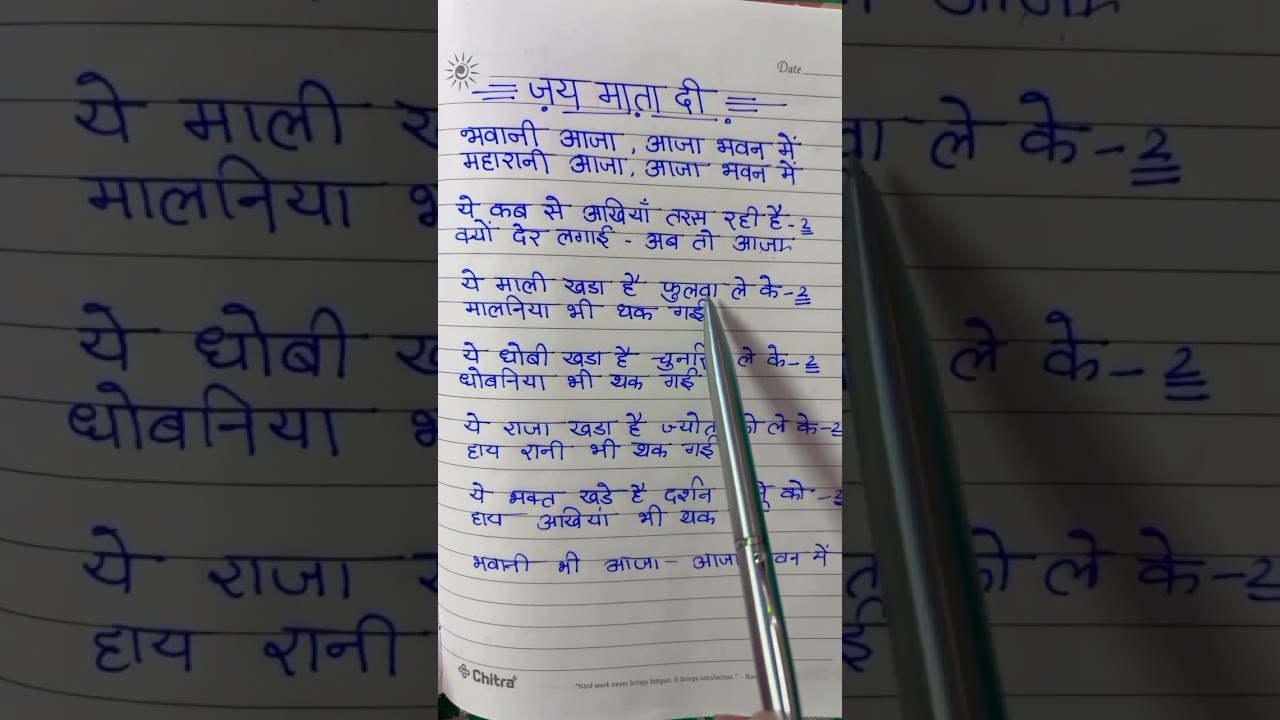 Date
जय माता दी
भवानी आजा, आजा भवन में
महारानी आजा, आजा भवन में
ये कब से अखियाँ तरस रही है-2
क्यों देर लगाई - अब तो आजा
ये माली खडा है फुलवा ले के-2
मालनिया भी थक गई
ये धोबी खडा है ले के-2
धोबनिया भी थक गई
ये राजा खडा है ज्योत ले के-2
हाय रानी भी थक गई
ये भक्त खडे है दर्शन को-2
हाय अखियां भी थक
भवानी भी आजा - आजा में
Chitra
"Hard work never brings fatigue. It brings satisfaction." -